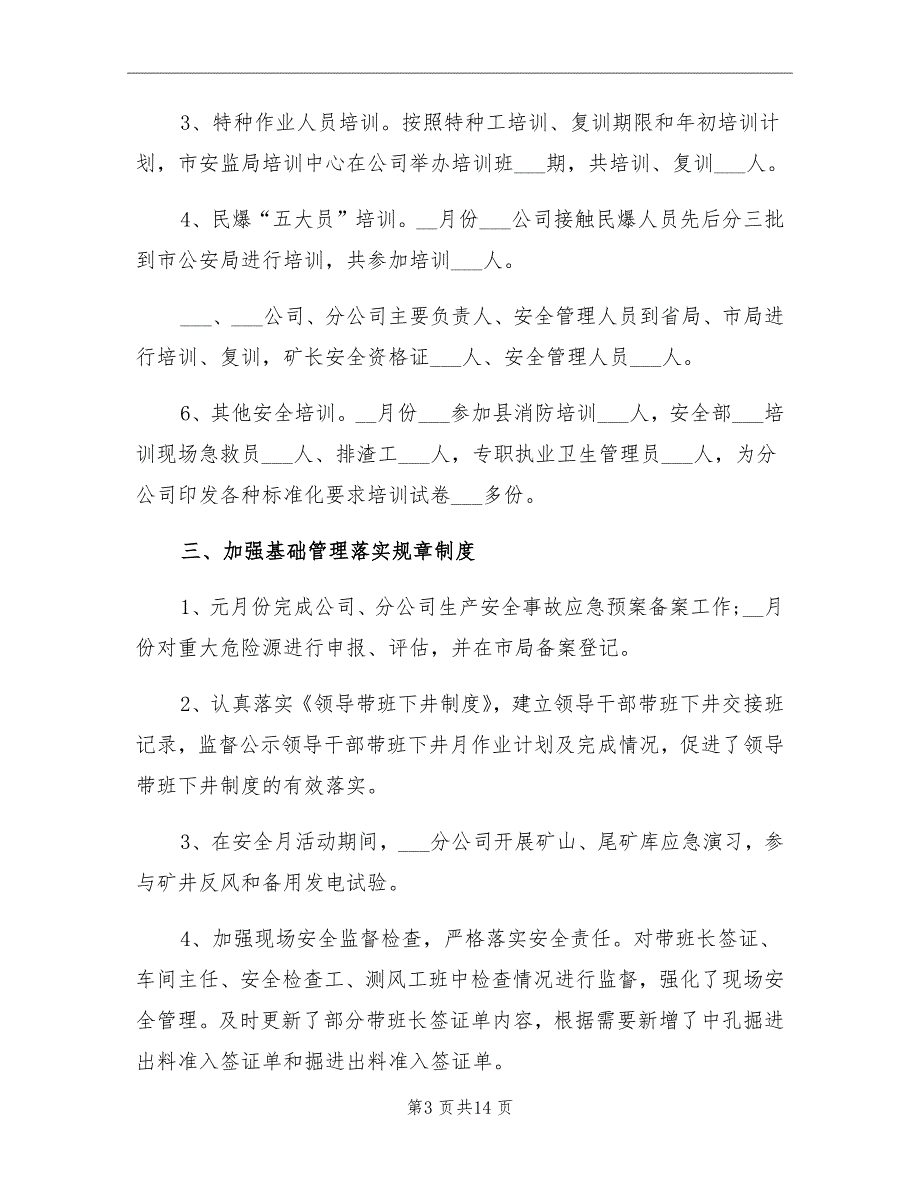 3、特种作业人员培训。按照特种工培训、复训期限和年初培训计
划，市安监局培训中心在公司举办培训班___期，共培训、复训___人。
4、民爆“五大员”培训。__月份___公司接触民爆人员先后分三批
到市公安局进行培训，共参加培训___人。
___、___公司、分公司主要负责人、安全管理人员到省局、市局进
行培训、复训，矿长安全资格证___人、安全管理人员___人。
6、其他安全培训。__月份___参加县消防培训___人，安全部___培
训现场急救员___人、排渣工___人，专职执业卫生管理员___人，为分
公司印发各种标准化要求培训试卷___多份。
三、加强基础管理落实规章制度
1、元月份完成公司、分公司生产安全事故应急预案备案工作;__月
份对重大危险源进行申报、评估，并在市局备案登记。
2、认真落实《领导带班下井制度》，建立领导干部带班下井交接班
记录，监督公示领导干部带班下井月作业计划及完成情况，促进了领导
带班下井制度的有效落实。
3、在安全月活动期间，___分公司开展矿山、尾矿库应急演习，参
与矿井反风和备用发电试验。
4、加强现场安全监督检查，严格落实安全责任。对带班长签证、
车间主任、安全检查工、测风工班中检查情况进行监督，强化了现场安
全管理。及时更新了部分带班长签证单内容，根据需要新增了中孔掘进
出料准入签证单和掘进出料准入签证单。
第3 页共14 页